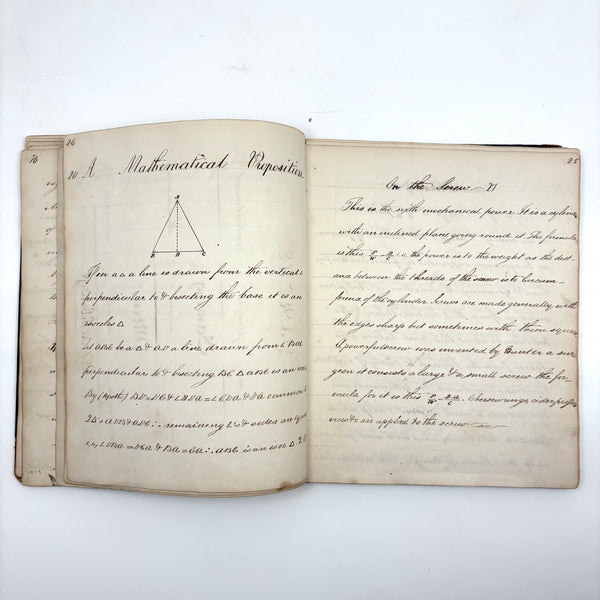 76
24
20 A Mathematical Proposition
A
B D C
If in a △ a line is drawn from the vertical ∠
perpendicular to & bisecting the base it is an
isosceles △
Let ABC be a △ & AD a line drawn from ∠ BAC
perpendicular to & bisecting BC △ ABC is an
By (hypoth) BD = DC & ∠ BDA = ∠ CDA & DA common
2 △s ADB & ADC ∴ remaining ∠s & sides are
∠ DBA = DCA & BA = CA ∴ ABC is an isos △
25
On the Screw 21
This is the sixth mechanical power. It is a cylinder
with an inclined plane going round it. The formula
is this i.e. the power is to the weight as the dist
ance between the threads of the screw is to circum
ference of the cylinder Screws are made generally with
the edges sharp but sometimes with them square
A powerful screw was invented by Hunter a sur
geon it consists of a large & a small screw the for
mula for it is this Cheesewrings, cider presses
&c are applied to the screw